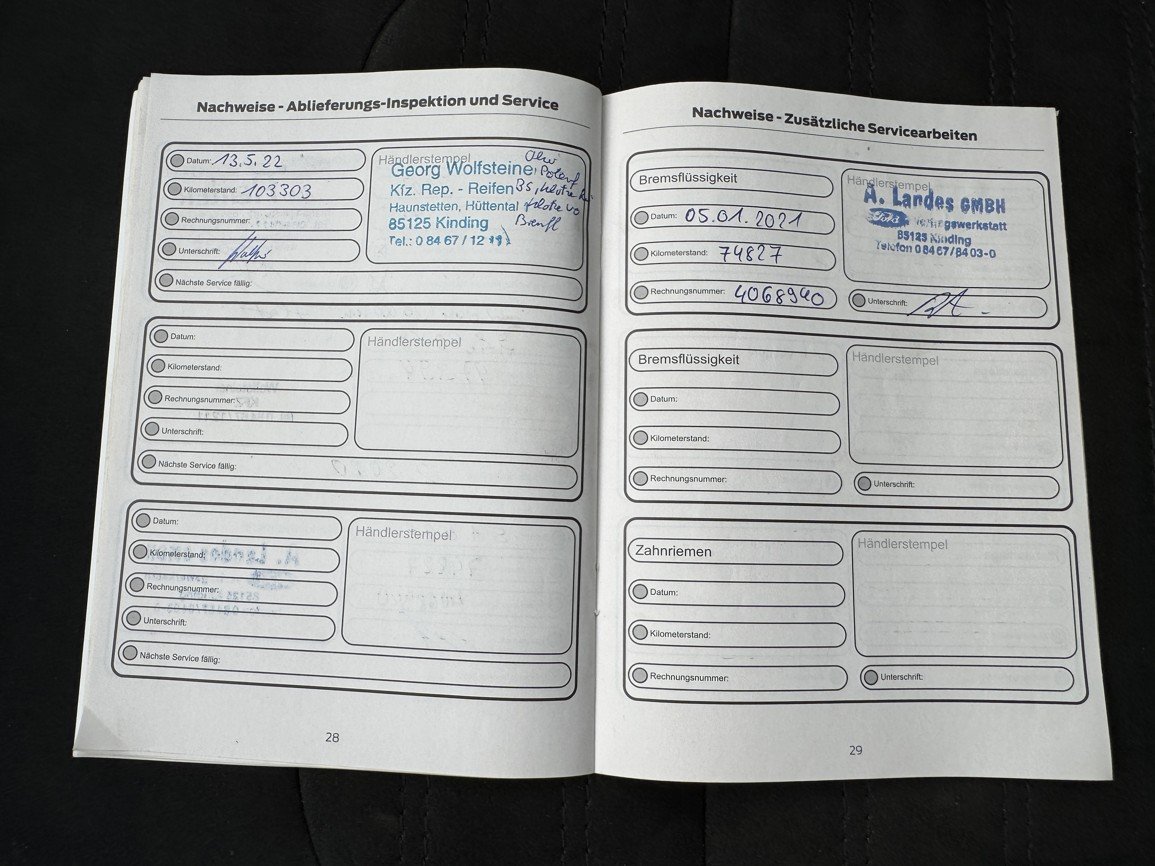 Nachweise - Ablieferungs-Inspektion und Service
Datum: 13.5.22
Kilometerstand: 103303
Rechnungsnummer:
Unterschrift:
Nächste Service fällig:
Händlerstempel
Georg Wolfsteiner
Kfz. Rep. - Reifen
Haunstetten, Hüttental
85125 Kinding
Tel.: 0 84 67 / 12 11
Datum:
Kilometerstand:
Rechnungsnummer:
Unterschrift:
Nächste Service fällig:
Händlerstempel
Datum:
Kilometerstand:
Rechnungsnummer:
Unterschrift:
Nächste Service fällig:
Händlerstempel
28
Nachweise - Zusätzliche Servicearbeiten
Bremsflüssigkeit
Datum: 05.01.2021
Kilometerstand: 74827
Rechnungsnummer: 4068940
Händlerstempel
A. Landes GMBH
85125 Kinding
Telefon 08467/8403-0
Unterschrift:
Bremsflüssigkeit
Datum:
Kilometerstand:
Rechnungsnummer:
Händlerstempel
Unterschrift:
Zahnriemen
Datum:
Kilometerstand:
Rechnungsnummer:
Händlerstempel
Unterschrift:
29